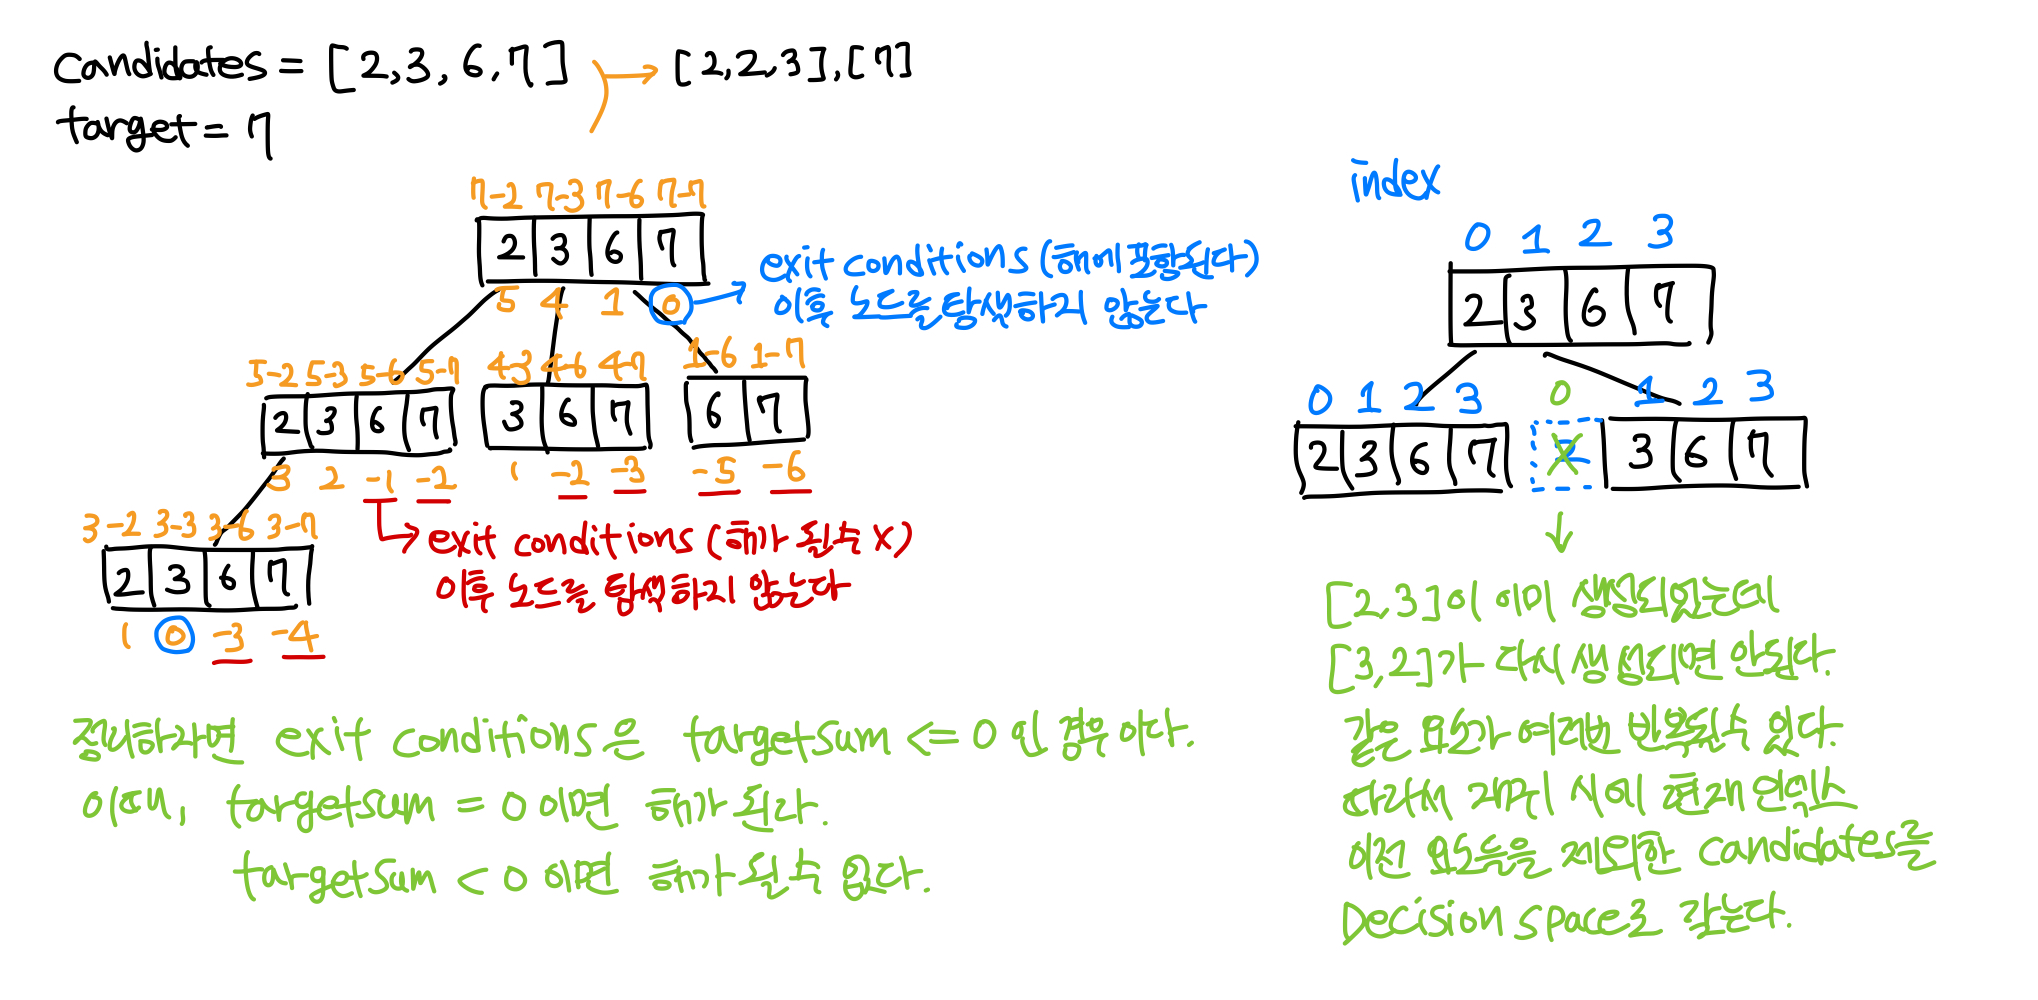 candidates = [2,3,6,7] → [2,2,3],[7]
target = 7
7-2 7-3 7-6 7-7
2 3 6 7
5 4 1 0
exit conditions (해에 포함된다)
이후 노드를 탐색하지 않는다
5-2 5-3 5-6 5-7
2 3 6 7
3 2 -1 -2
4-3 4-6 4-7
3 6 7
1 -2 -3
1-6 1-7
6 7
-5 -6
exit conditions (해가 될수 X)
이후 노드를 탐색하지 않는다
3-2 3-3 3-6 3-7
2 3 6 7
1 0 -3 -4
정리하자면 exit conditions은 targetsum <= 0 인 경우 이다.
이때, targetsum = 0 이면 해가 된다.
targetsum < 0 이면 해가 될수 없다.
index
0 1 2 3
2 3 6 7
0 1 2 3
2 3 6 7
0 1 2 3
2 3 6 7
↓
[2,3]이 이미 생성되있는데
[3,2]가 다시 생성되면 안된다.
같은 요소가 여러번 반복될수 있다.
따라서 재귀 시에 현재 인덱스
이전 요소들을 제외한 candidates를
Decision space로 갖는다.